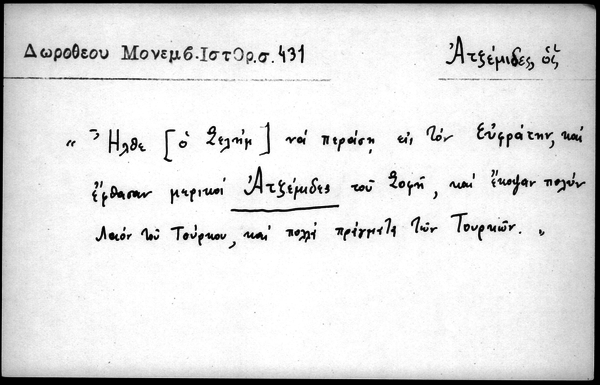 Δωροθεου Μονεμβ.Ιστορ.σ.431
Ἀτζέμιδες, οἱ
" Ἦλθε [ὁ Σελήμ] νά περάσῃ εἰς τόν Εὐφράτην, καί
ἔφθασαν μερικοί Ἀτζέμιδες τοῦ Σοφῆ, καί ἔκοψαν πολύν
λαόν τοῦ Τούρκου, καί πολλά πράγματα τῶν Τουρκῶν. "